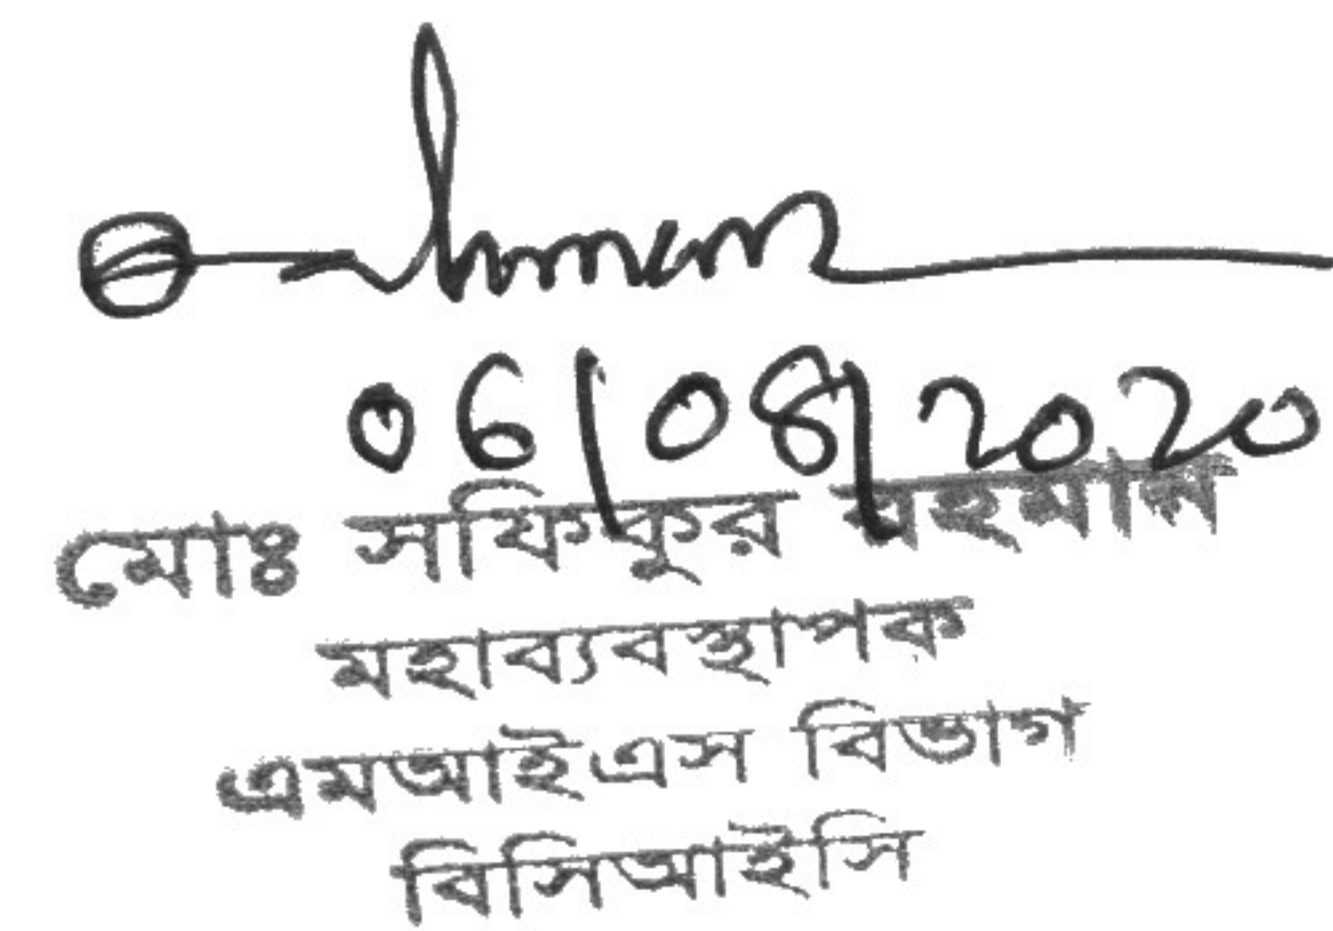 06/08/2020
মোঃ সফিকুর রহমান
মহাব্যবস্থাপক
এমআইএস বিভাগ
বিসিআইসি